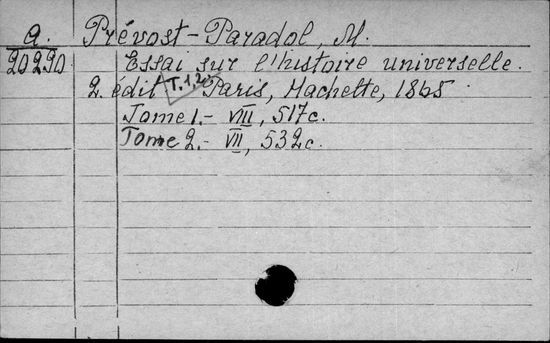 A. Prévost-Paradol, M.
20290 Essai sur l'histoire universelle.
2. édit T. 1, 2. Paris, Hachette, 1865
Tome 1.- VIII, 517c.
Tome 2.- VII, 532c.